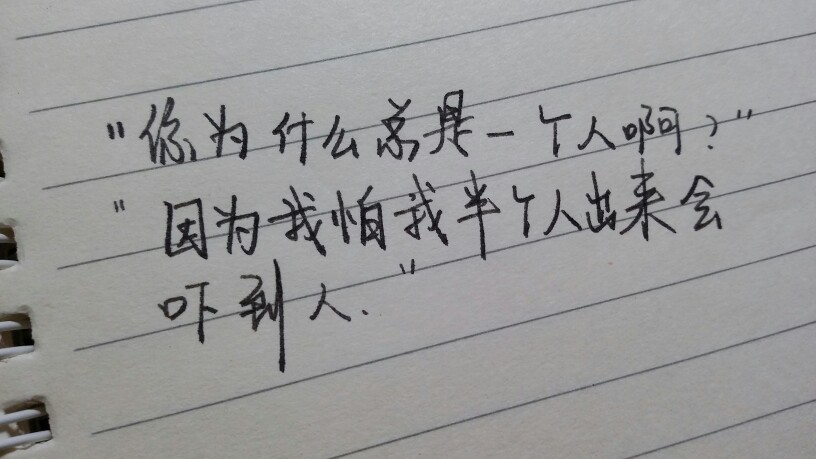 "你为什么总是一个人啊？"
"因为我怕我半个人出来会
吓到人."